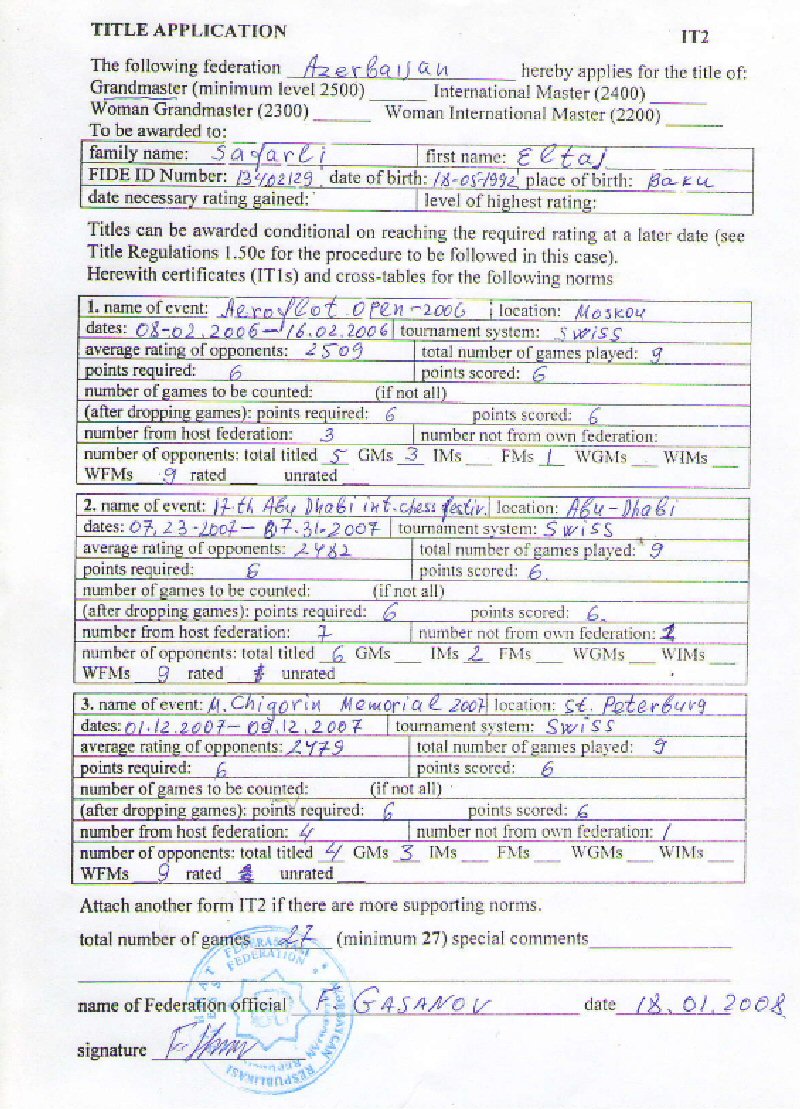 TITLE APPLICATION IT2
The following federation Azerbaijan hereby applies for the title of:
Grandmaster (minimum level 2500) ______ International Master (2400) ______
Woman Grandmaster (2300) ______ Woman International Master (2200) ______
To be awarded to:
family name: Safarli first name: Eltaj
FIDE ID Number: 13402129 date of birth: 18-05-1992 place of birth: Baku
date necessary rating gained: level of highest rating:
Titles can be awarded conditional on reaching the required rating at a later date (see
Title Regulations 1.50c for the procedure to be followed in this case).
Herewith certificates (IT1s) and cross-tables for the following norms
1. name of event: Aeroflot Open-2006 location: Moskou
dates: 08-02.2006-16.02.2006 tournament system: Swiss
average rating of opponents: 2509 total number of games played: 9
points required: 6 points scored: 6
number of games to be counted: (if not all)
(after dropping games): points required: 6 points scored: 6
number from host federation: 3 number not from own federation:
number of opponents: total titled 5 GMs 3 IMs ___ FMs 1 WGMs ___ WIMs ___
WFMs 9 rated ___ unrated ___
2. name of event: 17-th Abu Dhabi int.chess festiv. location: Abu-Dhabi
dates: 07,23-2007- 07.31-2007 tournament system: Swiss
average rating of opponents: 2482 total number of games played: 9
points required: 6 points scored: 6.
number of games to be counted: (if not all)
(after dropping games): points required: 6 points scored: 6.
number from host federation: 7 number not from own federation: 1
number of opponents: total titled 6 GMs ___ IMs 2 FMs ___ WGMs ___ WIMs ___
WFMs 9 rated unrated ___
3. name of event: M.Chigorin Memorial 2007 location: St. Peterburg
dates: 01.12.2007-09.12.2007 tournament system: Swiss
average rating of opponents: 2479 total number of games played: 9
points required: 6 points scored: 6
number of games to be counted: (if not all)
(after dropping games): points required: 6 points scored: 6
number from host federation: 4 number not from own federation: 1
number of opponents: total titled 4 GMs 3 IMs ___ FMs ___ WGMs ___ WIMs ___
WFMs 9 rated unrated ___
Attach another form IT2 if there are more supporting norms.
total number of games 27 (minimum 27) special comments
name of Federation official F. GASANOV date 18.01.2008
signature